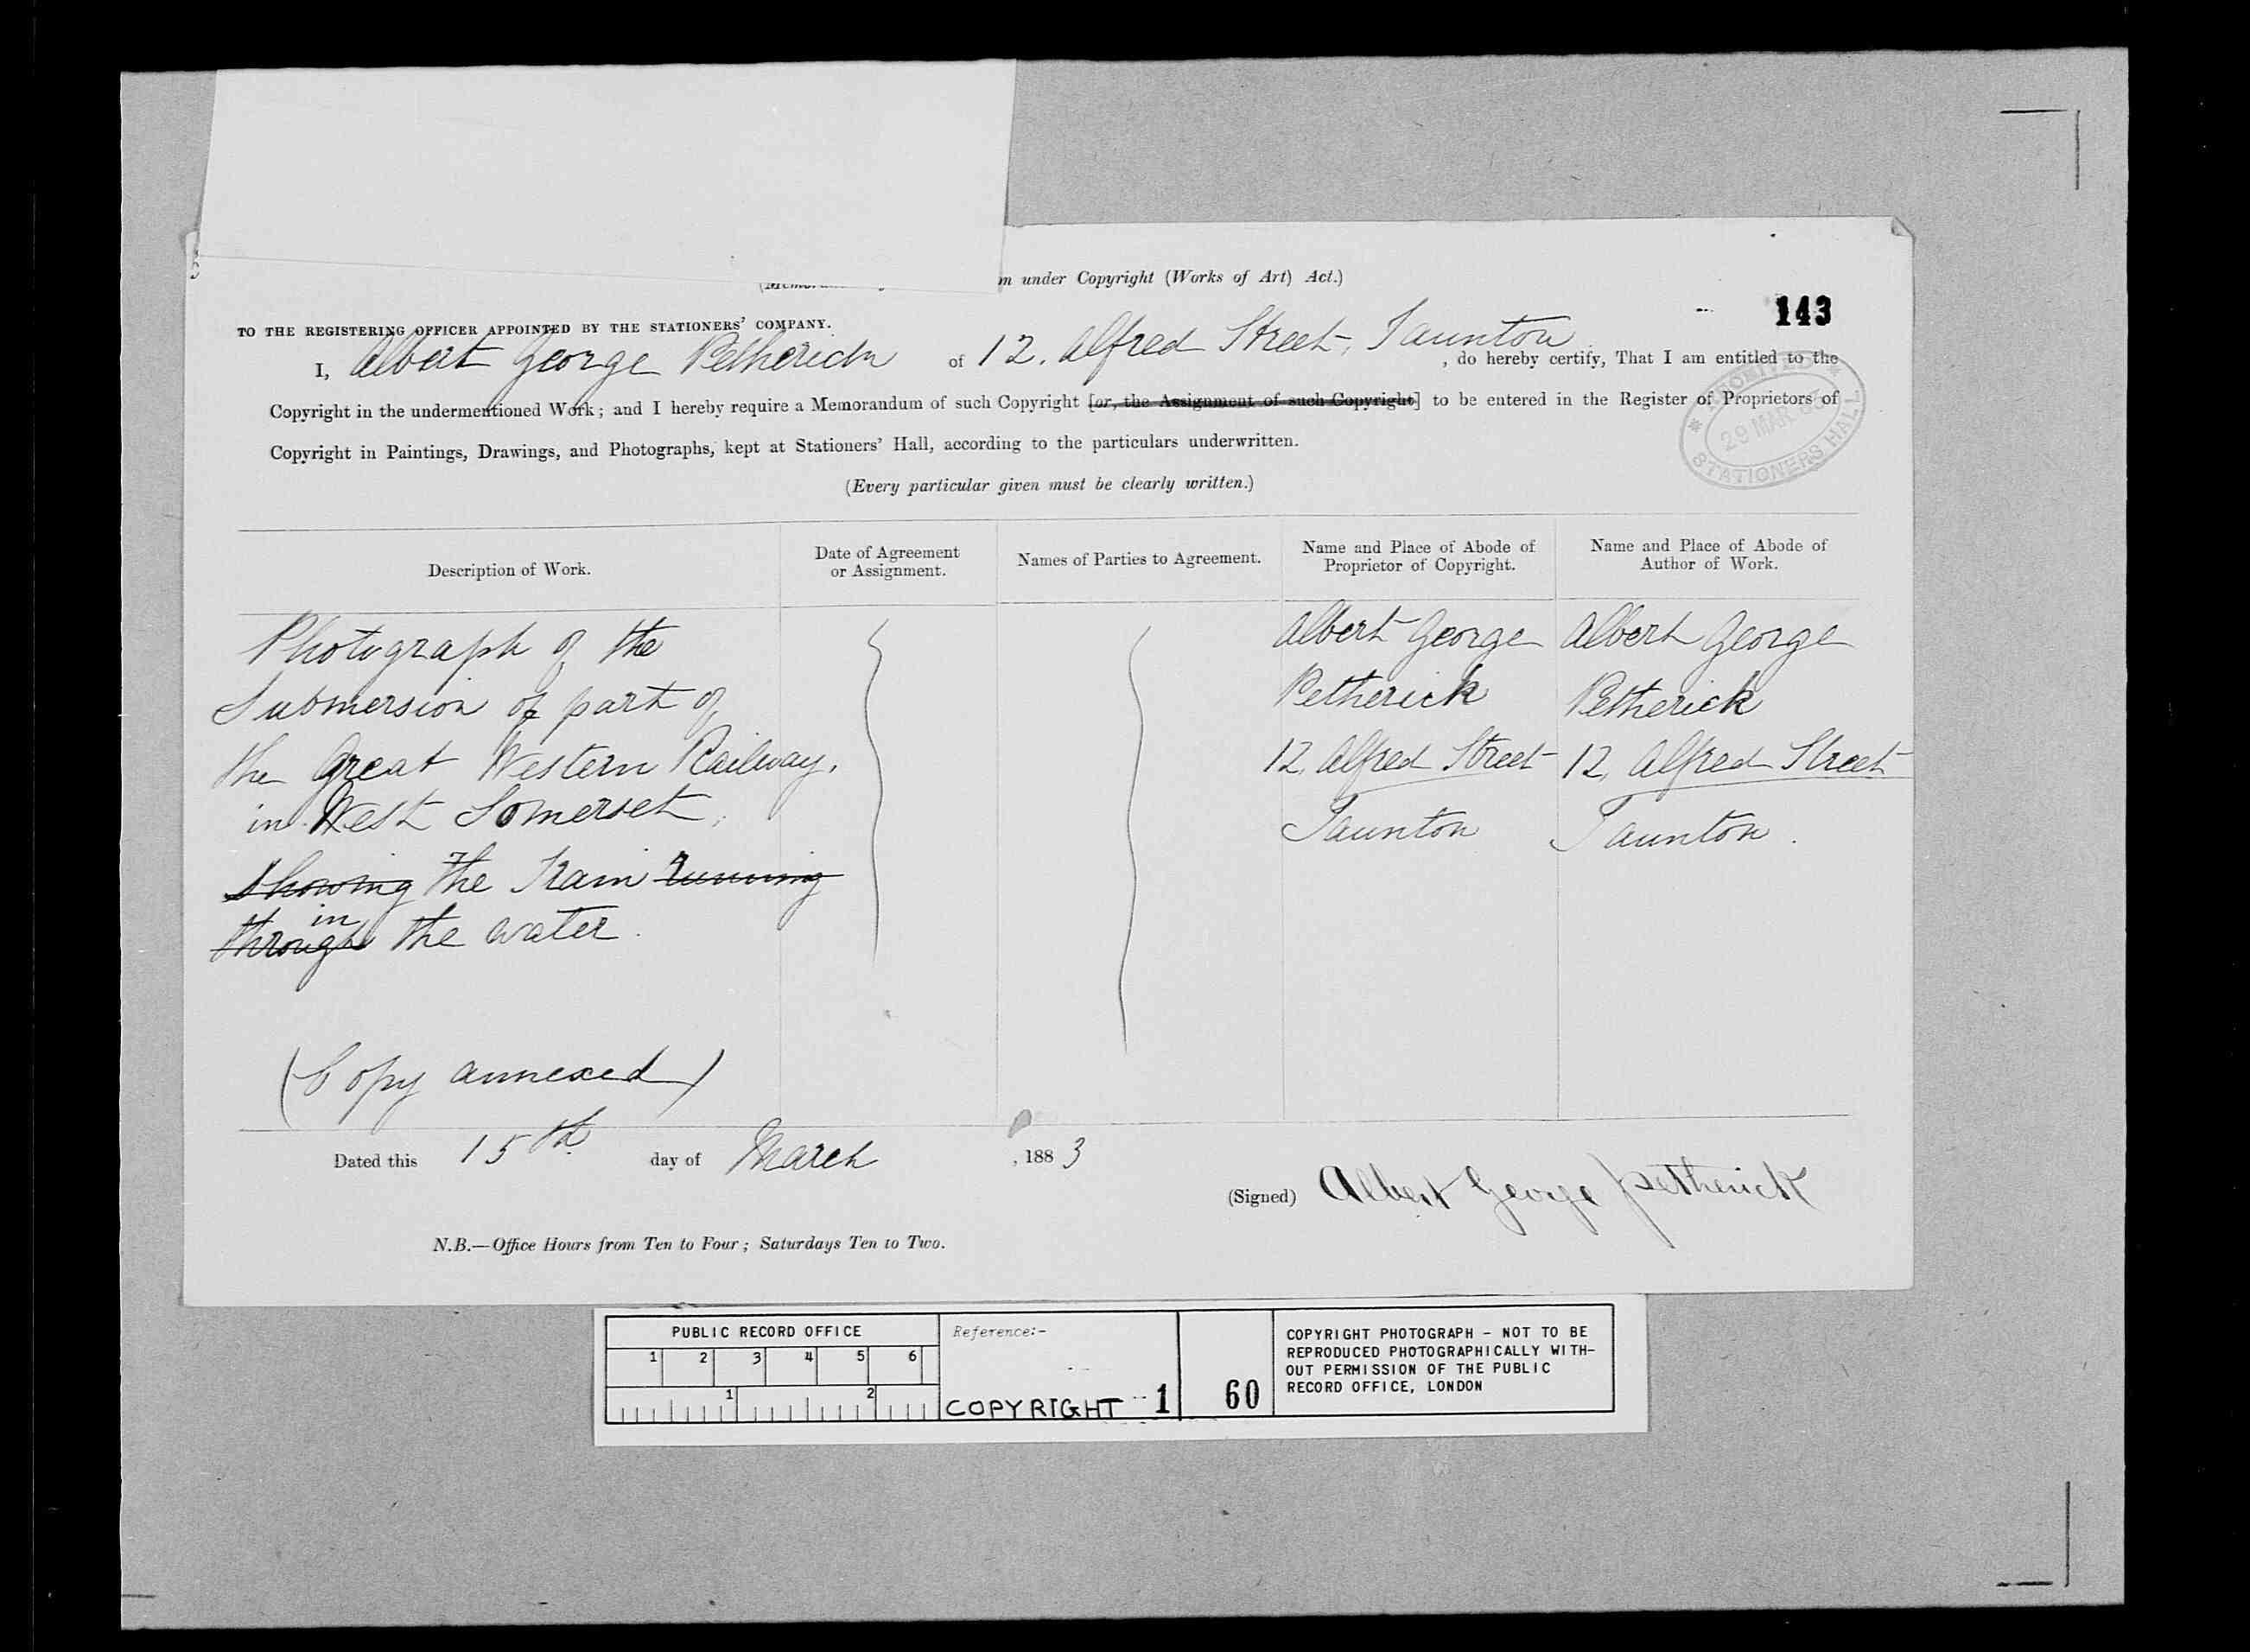 m under Copyright (Works of Art) Act.)
143
TO THE REGISTERING OFFICER APPOINTED BY THE STATIONERS' COMPANY.
I, Albert George Petherick of 12, Alfred Street, Taunton, do hereby certify, That I am entitled to the
Copyright in the undermentioned Work; and I hereby require a Memorandum of such Copyright [or, the Assignment of such Copyright] to be entered in the Register of Proprietors of
Copyright in Paintings, Drawings, and Photographs, kept at Stationers' Hall, according to the particulars underwritten.
29 MAR. 83
STATIONERS HALL
(Every particular given must be clearly written.)
Description of Work.
Date of Agreement
or Assignment.
Names of Parties to Agreement.
Name and Place of Abode of
Proprietor of Copyright.
Name and Place of Abode of
Author of Work.
Photograph of the
Submersion of part of
the Great Western Railway,
in West Somerset,
showing the Train running
in
through the water.
(Copy annexed)
Albert George
Petherick
12, Alfred Street
Taunton
Albert George
Petherick
12, Alfred Street
Taunton.
Dated this 15th day of March, 1883
(Signed) Albert George Petherick
N.B.—Office Hours from Ten to Four; Saturdays Ten to Two.
PUBLIC RECORD OFFICE
1 2 3 4 5 6
1 2
Reference:-
COPYRIGHT 1
60
COPYRIGHT PHOTOGRAPH - NOT TO BE
REPRODUCED PHOTOGRAPHICALLY WITH-
OUT PERMISSION OF THE PUBLIC
RECORD OFFICE, LONDON